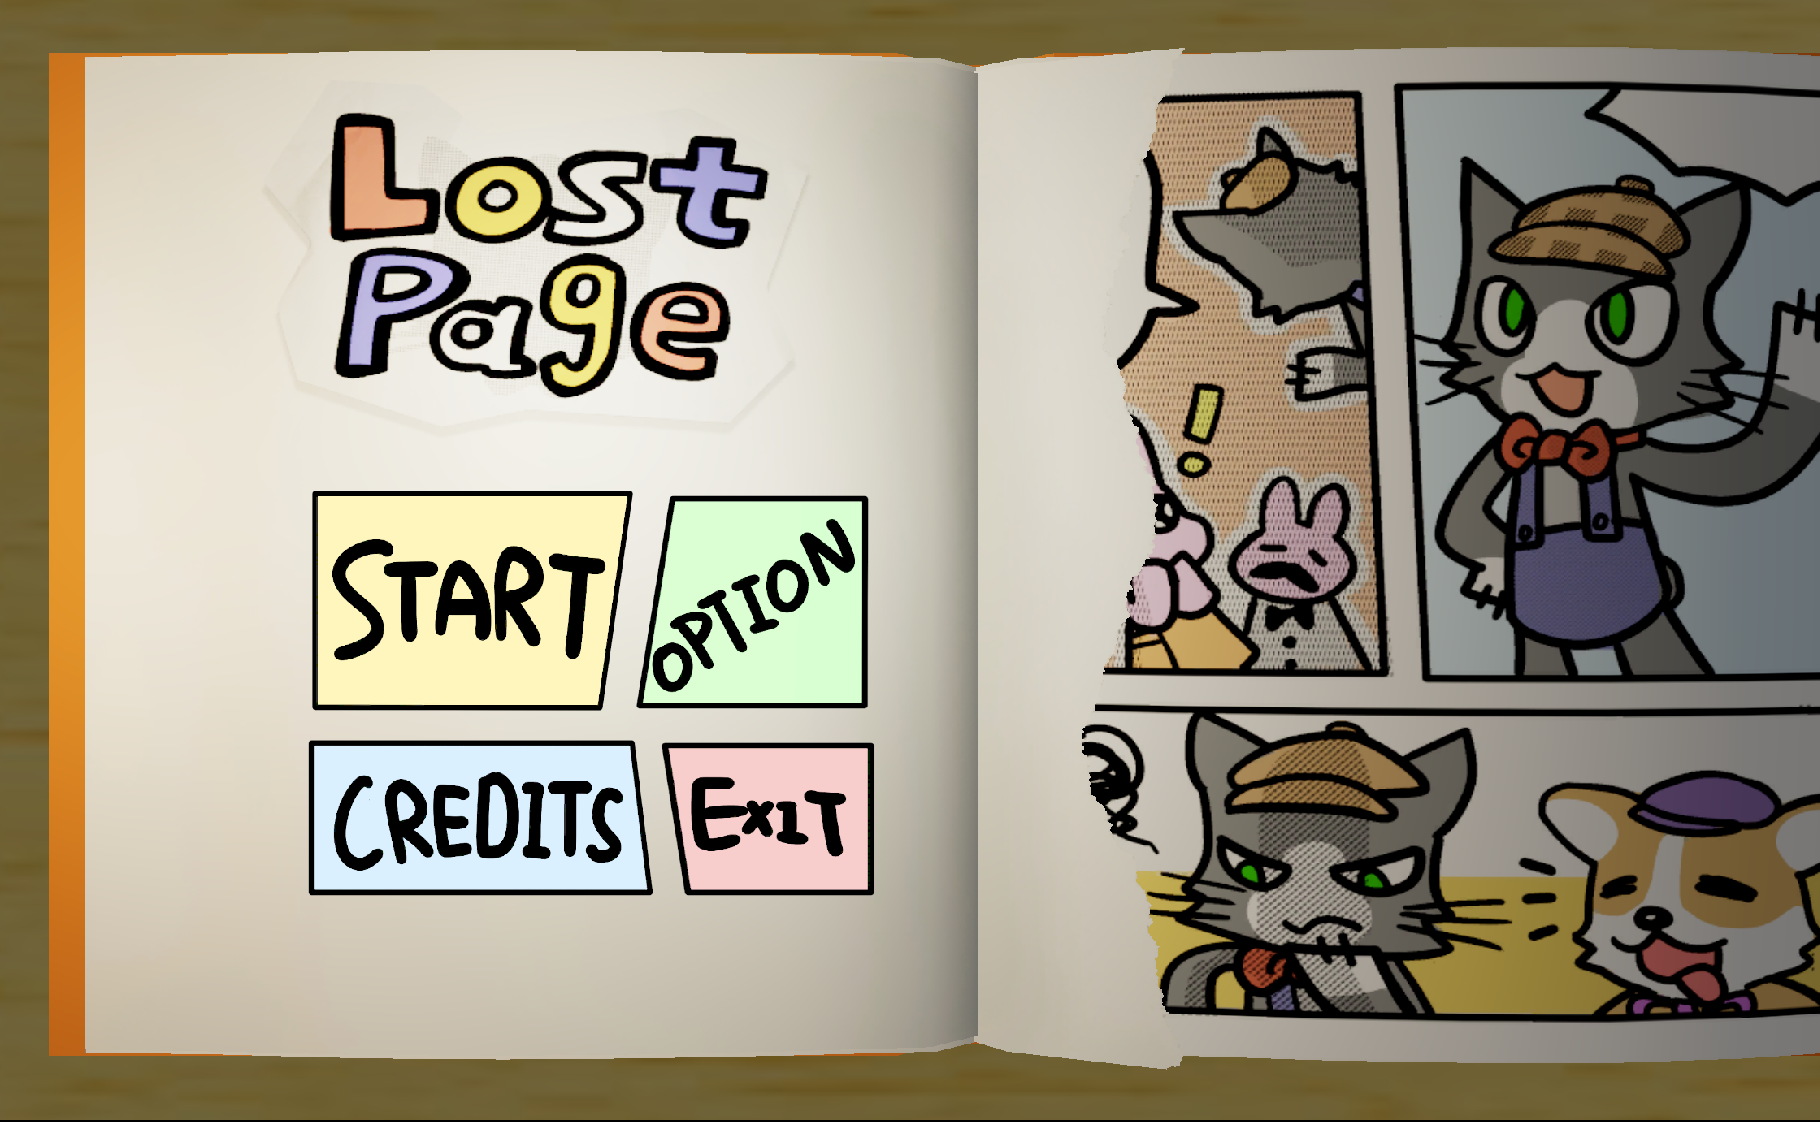 Lost
Page
START
OPTION
CREDITS
ExIT
!